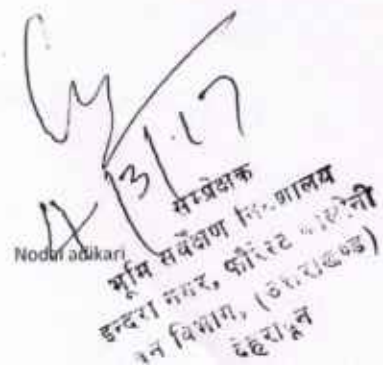 /3/17
Nodal adikari
सम्प्रेक्षक
भूमि सर्वेक्षण निदेशालय
इन्दरा नगर, फौरेस्ट कालोनी
वन विभाग, (उत्तराखण्ड)
देहरादून